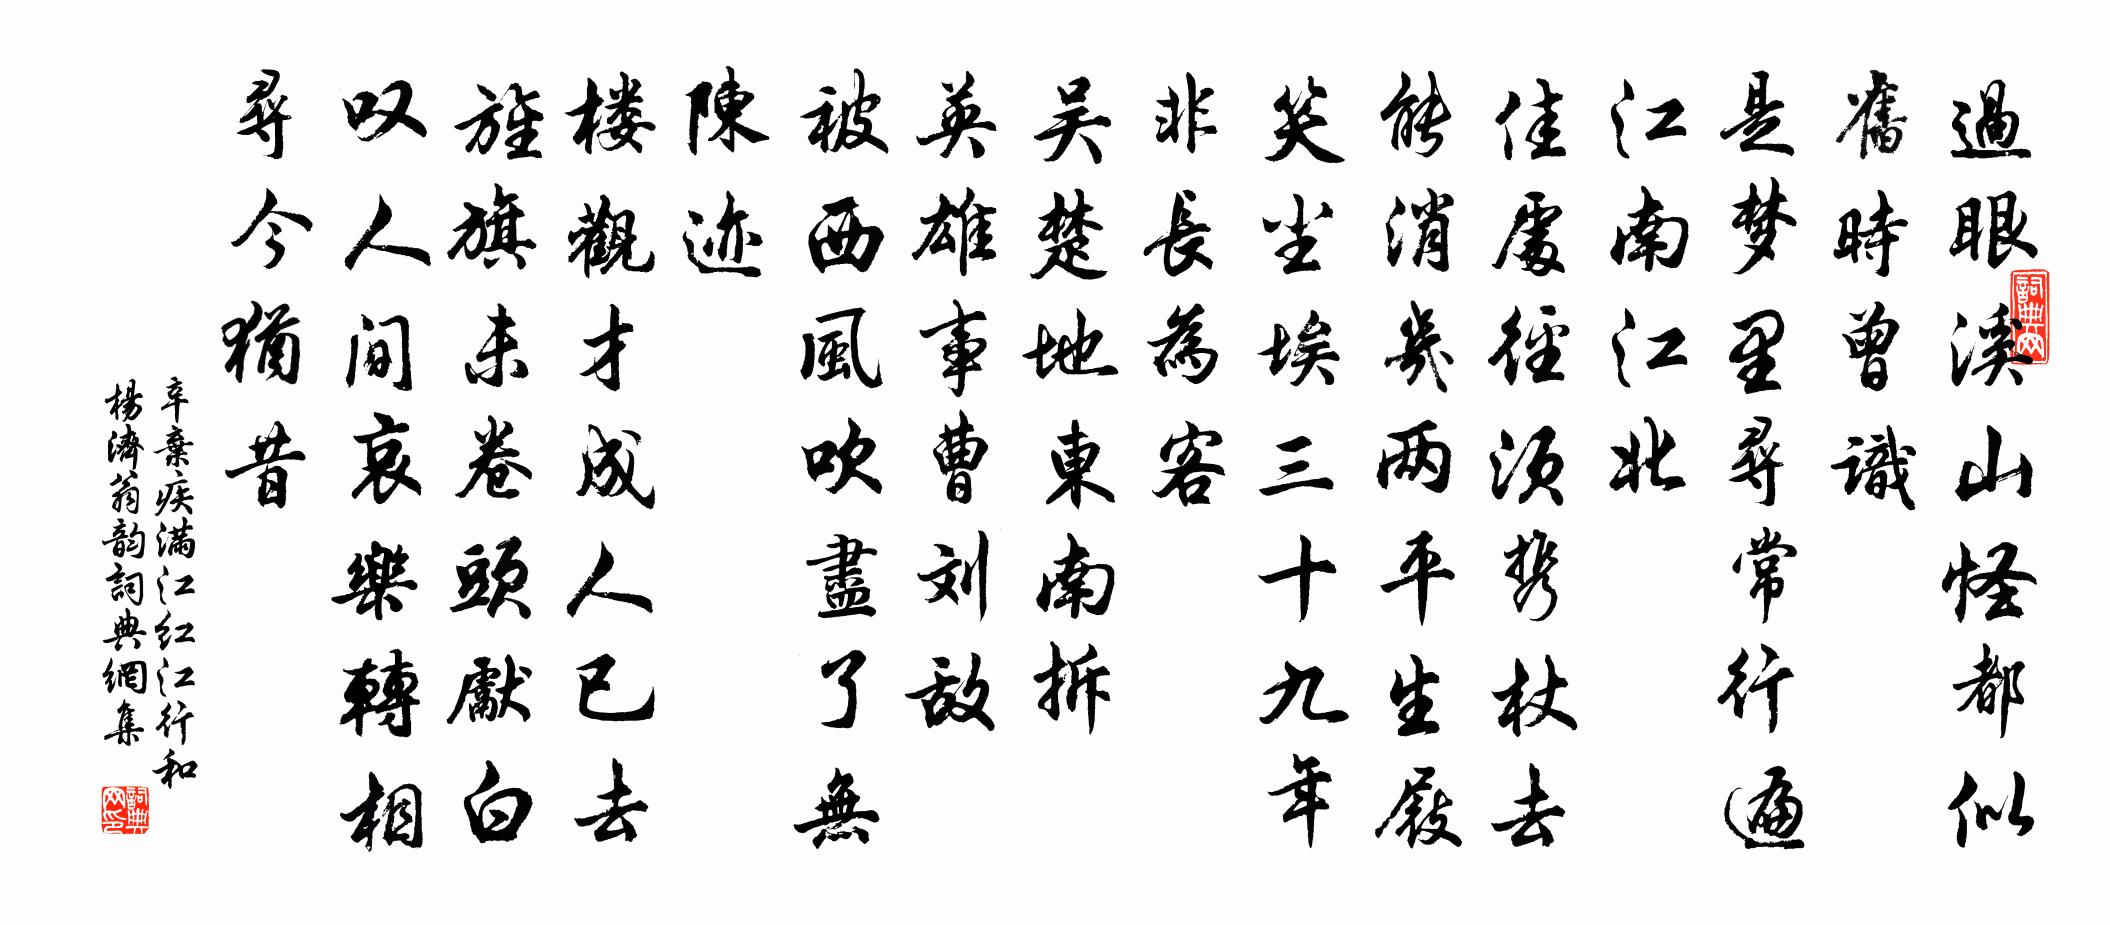 過眼溪山怪都似
舊時曾識
是梦里尋常行遍
江南江北
佳處徑须携杖去
能消幾两平生屐
笑尘埃三十九年
非長為客
吴楚地東南拆
英雄事曹刘敌
被西風吹盡了無
陳迹
楼觀才成人已去
旌旗未卷頭獻白
叹人間哀樂轉相
尋今猶昔
辛棄疾满江红江行和
楊濟翁韵詞典網集
詞典网
詞典网印